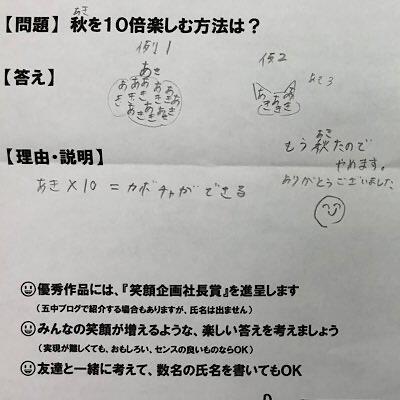 【問題】秋を10倍楽しむ方法は？
あき
例1
例2
【答え】
あき
あき
ああ
あき
あき
あき
あき
もう秋たので
あき
やめます。
ありがとうございました
【理由・説明】
あき×10＝カボチャができる
優秀作品には、『笑顔企画社長賞』を進呈します
（五中ブログで紹介する場合もありますが、氏名は出ません）
みんなの笑顔が増えるような、楽しい答えを考えましょう
（実現が難しくても、おもしろい、センスの良いものならOK）
友達と一緒に考えて、数名の氏名を書いてもOK